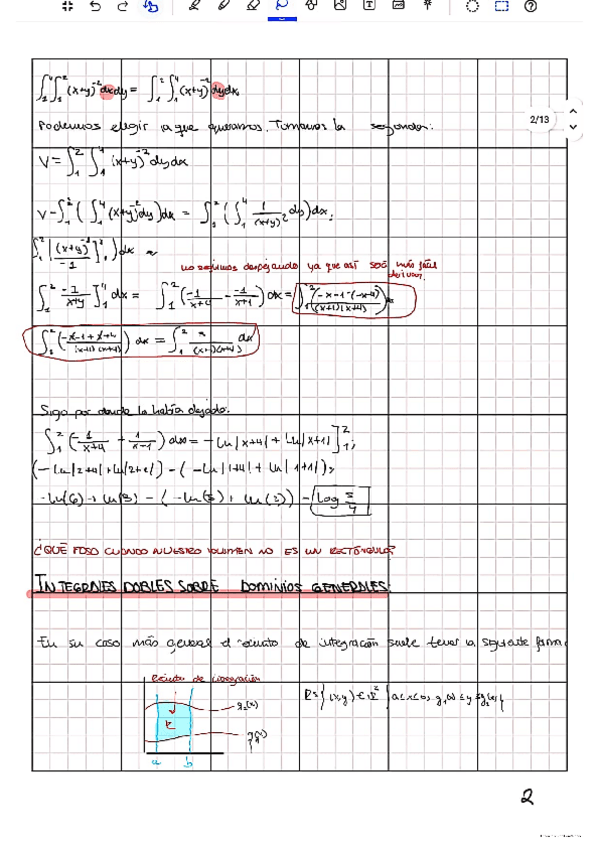 ∫₁⁴∫₁² (x+y)⁻² dxdy = ∫₁²∫₁⁴ (x+y)⁻² dydx
Podemos elegir la que queramos. Tomamos la segunda:
2/13
V = ∫₁²∫₁⁴ (x+y)⁻² dydx
V = ∫₁² (∫₁⁴ (x+y)⁻² dy) dx = ∫₁² (∫₁⁴ 1/(x+y)² dy) dx;
∫₁² [(x+y)⁻¹/-1]₁⁴) dx =
no seguimos despejando ya que así será más fácil
derivar.
∫₁² -1/x+y ]₁⁴ dx = ∫₁² (-1/x+4 - -1/x+1) dx = ∫₁² (-x-1-(-x-4)/(x+1)(x+4)) =
∫₁² (-x-1+x+4/(x+1)(x+4)) dx = ∫₁² /(x+1)(x+4) dx
Sigo por donde la había dejado.
∫₁² (-1/x+4 + 1/x+1) dx = -ln|x+4| + ln|x+1| ]₁²;
-ln(6) + ln(3) - (-ln(5) + ln(2)) = log 5/4
¿QUÉ PASA CUANDO NUESTRO VOLUMEN NO ES UN RECTÁNGULO?
INTEGRALES DOBLES SOBRE DOMINIOS GENERALES:
En su caso más general el recinto de integración suele tener la siguiente forma
Recinto de integración
R = {(x,y) ∈ ℝ² / a≤x≤b, g₁(x) ≤ y ≤ g₂(x)}
g₂(x)
R
g₁(x)
a b
2